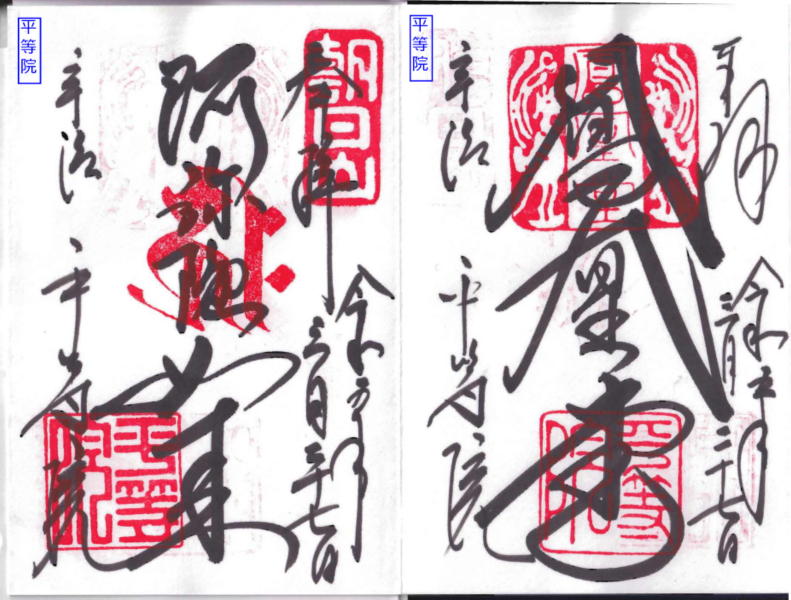 平等院
奉拝
令和五年
三月二十七日
鳳凰堂
宇治 平等院
平等院
平等院
朝日山
奉拝
令和五年
三月二十七日
阿弥陀如来
宇治 平等院
平等院